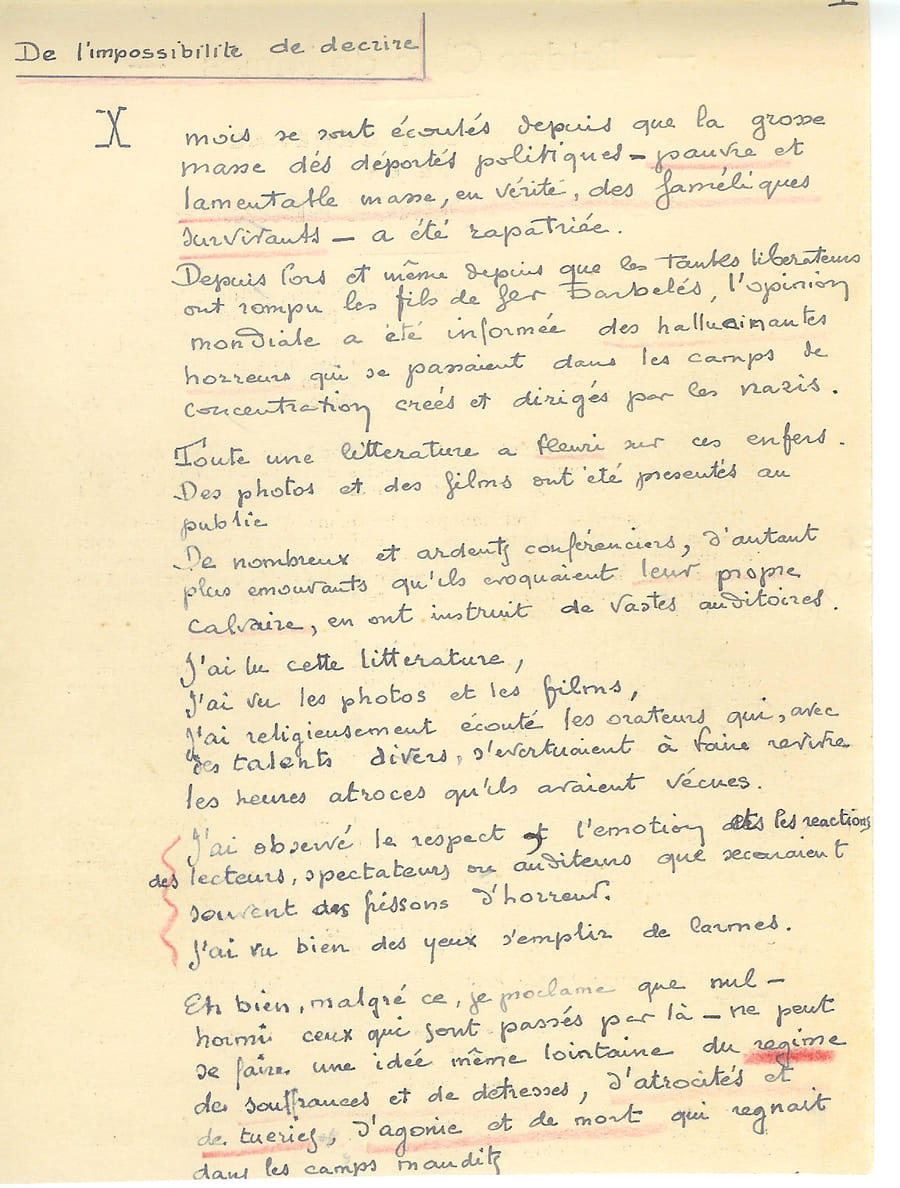 I
De l'impossibilité de decrire
X mois se sont écoulés depuis que la grosse
masse des déportés politiques – pauvre et
lamentable masse, en vérité, des faméliques
survivants – a été rapatriée.
Depuis lors et même depuis que les tankes liberateurs
ont rompu les fils de fer barbelés, l'opinion
mondiale a été informée des hallucinantes
horreurs qui se passaient dans les camps de
concentration créés et dirigés par les nazis.
Toute une litterature a fleuri sur ces enfers.
Des photos et des films ont été presentés au
public
De nombreux et ardents conférenciers, d'autant
plus emouvants qu'ils evoquaient leur propre
calvaire, en ont instruit de vastes auditoires.
J'ai lu cette litterature,
J'ai vu les photos et les films,
J'ai religieusement écouté les orateurs qui, avec
des talents divers, s'evertuaient à faire revivre
les heures atroces qu'ils avaient vécues.
J'ai observé le respect et l'emotion les reactions
des lecteurs, spectateurs ou auditeurs que secouaient
souvent des frissons d'horreur.
J'ai vu bien des yeux s'emplir de larmes.
Eh bien, malgré ce, je proclame que nul –
hormi ceux qui sont passés par là – ne peut
se faire une idée même lointaine du regime
de souffrances et de detresses, d'atrocités et
de tueries, d'agonie et de mort qui regnait
dans les camps maudits